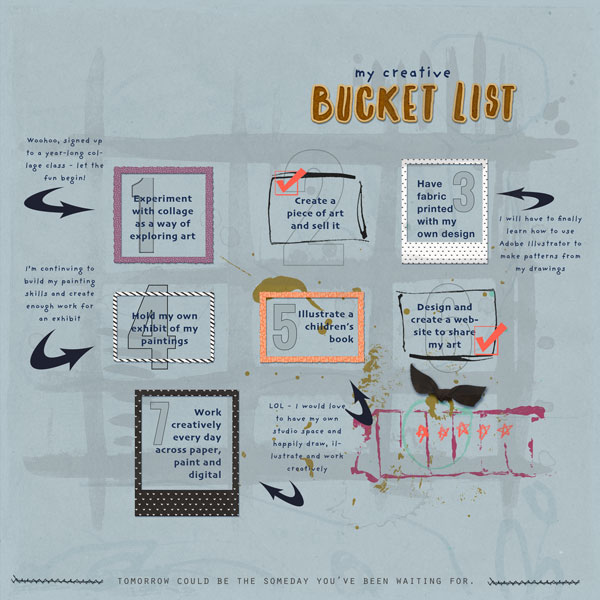 my creative
BUCKET LIST
Woohoo, signed up
to a year-long col-
lage class - let the
fun begin!
1
Experiment
with collage
as a way of
exploring art
2
Create a
piece of art
and sell it
3
Have
fabric
printed
with my
own design
I will have to finally
learn how to use
Adobe Illustrator to
make patterns from
my drawings
I'm continuing to
build my painting
skills and create
enough work for
an exhibit
4
Hold my own
exhibit of my
paintings
5
Illustrate a
children's
book
Design and
create a web-
site to share
my art
7
Work
creatively
every day
across paper,
paint and
digital
LOL - I would love
to have my own
studio space and
happily draw, il-
lustrate and work
creatively
TOMORROW COULD BE THE SOMEDAY YOU'VE BEEN WAITING FOR.